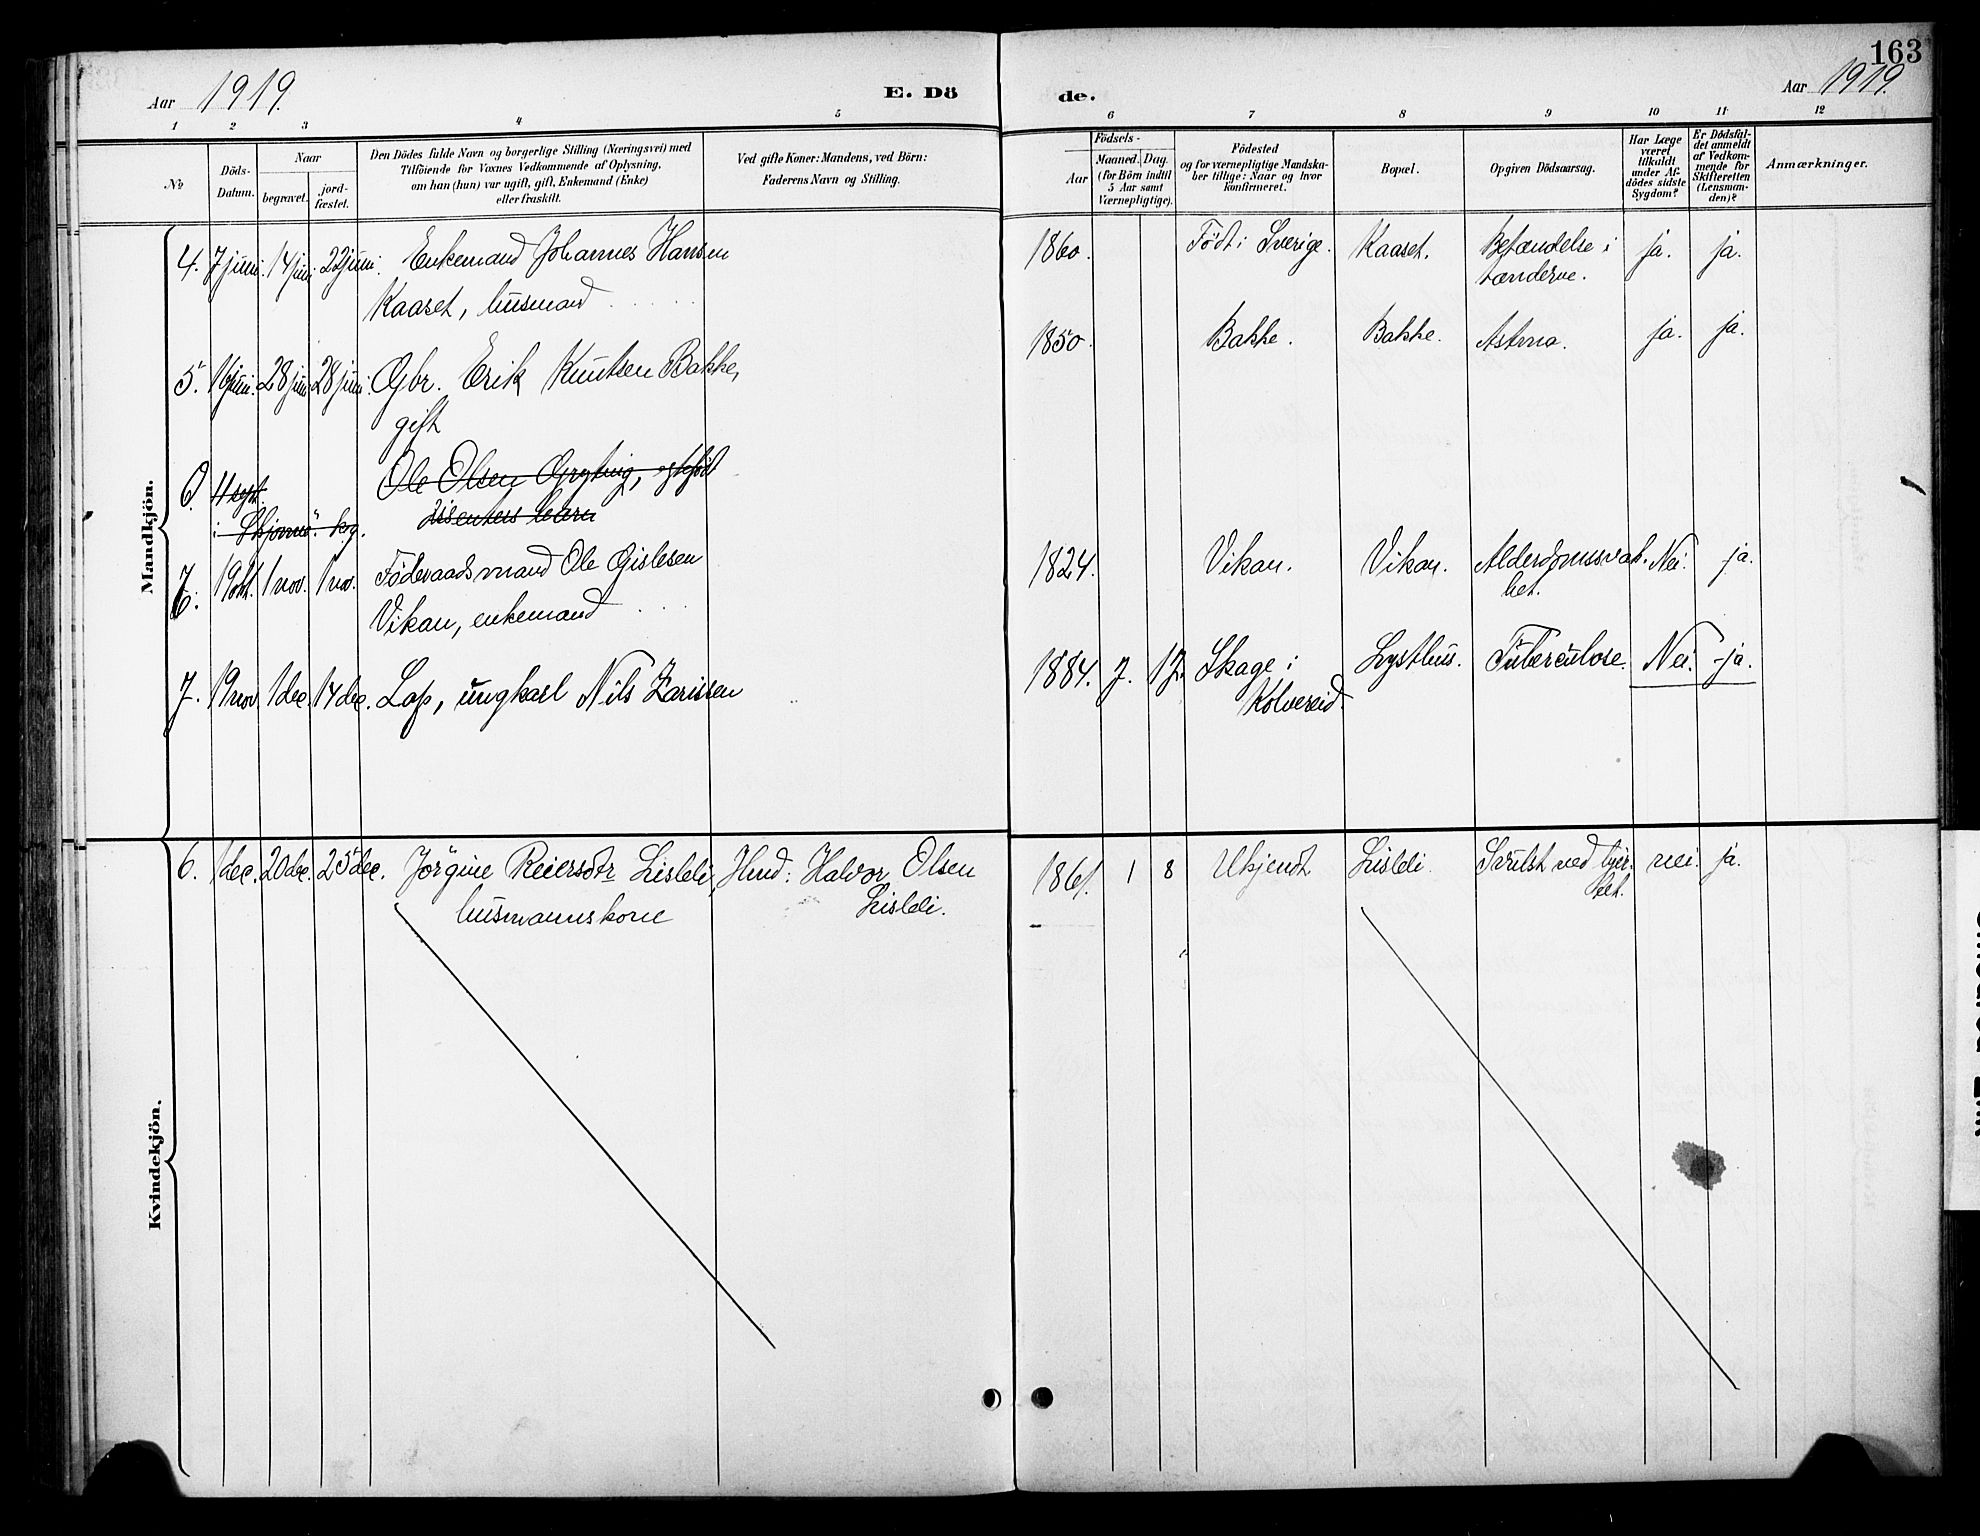 163
Aar 1919.
E. Dö
de.
Aar 1919.
1 2 3 4 5 6 7 8 9 10 11 12
No
Döds-
Datum.
Naar
begravet.
jord-
fæstet.
Den Dödes fulde Navn og borgerlige Stilling (Næringsvei) med
Tilföiende for Voxnes Vedkommende af Oplysning,
om han (hun) var ugift, gift, Enkemand (Enke)
eller fraskilt.
Ved gifte Koner: Mandens, ved Börn:
Faderens Navn og Stilling.
Födsels-
Aar
Maaned. Dag.
(for Börn indtil
5 Aar samt
Værnepligtige).
Födested
og for værnepligtige Mandska-
ber tillige: Naar og hvor
konfirmeret.
Bopæl.
Opgiven Dödsaarsag.
Har Læge
været
tilkaldt
under Af-
dödes sidste
Sygdom?
Er Dödsfal-
det anmeldt
af Vedkom-
mende for
Skifteretten
(Lensman-
den)?
Anmærkninger.
Mandkjön.
4. 7 juni. 14 juni. 22 juni. Enkemand Johannes Hansen
Kaaset, husmand
1860. Födt i Sverige. Kaaset. Betændelse i ja. ja.
tænderne.
5. 16 juni. 28 juni. 28 juni. Gbr. Erik Knutsen Bakke,
gift
1850. Bakke. Bakke. Astma. ja. ja.
6 11 sept. Ole Olsen Gryting, egtefödt
i Skjörnö. disenters barn
7
6. 19 okt. 1 nov. 1 nov. Föderaadsmand Ole Gislesen
Vikan, enkemand
1824. Vikan. Vikan. Alderdomssvak- Nei. ja.
het.
7. 19 nov. 1 dec. 14 dec. Lap, ungkarl Nils Zarissen
1884. 7. 17. Skage i Lysthus. Tuberculose. Nei. ja.
Kolvereid.
Kvindekjön.
6. 1 dec. 20 dec. 25 dec. Jörgine Reiersdtr Lisleli, Hmd: Halvor Olsen
husmannskone Lisleli.
1861. 1 8 Ukjendt Lisleli. Svulst ved hjer- nei. ja.
tet.